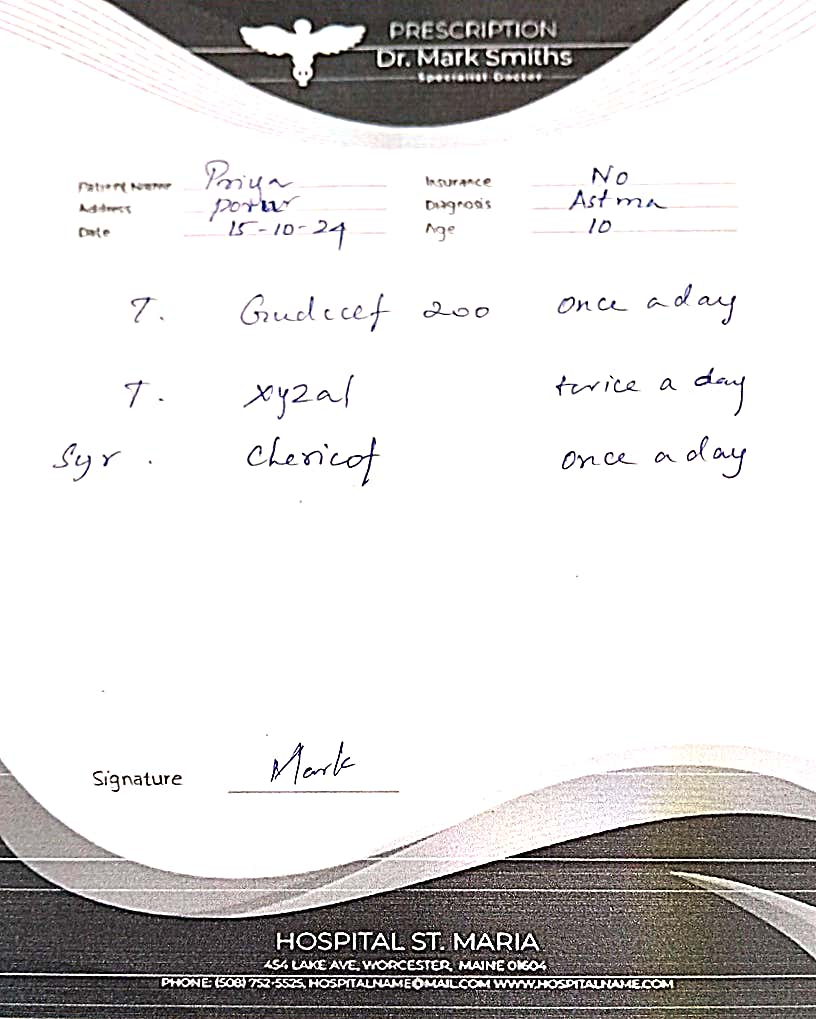 PRESCRIPTION
Dr. Mark Smiths
Specialist Doctor
Patient Name Priya Insurance No
Address porur Diagnosis Astma
Date 15-10-24 Age 10
T. Gudicef 200 once a day
T. xyzal twice a day
Syr. Chericof once a day
Signature Mark
HOSPITAL ST. MARIA
454 LAKE AVE, WORCESTER, MAINE 01604
PHONE: (508) 752-5525, HOSPITALNAME@MAIL.COM WWW.HOSPITALNAME.COM